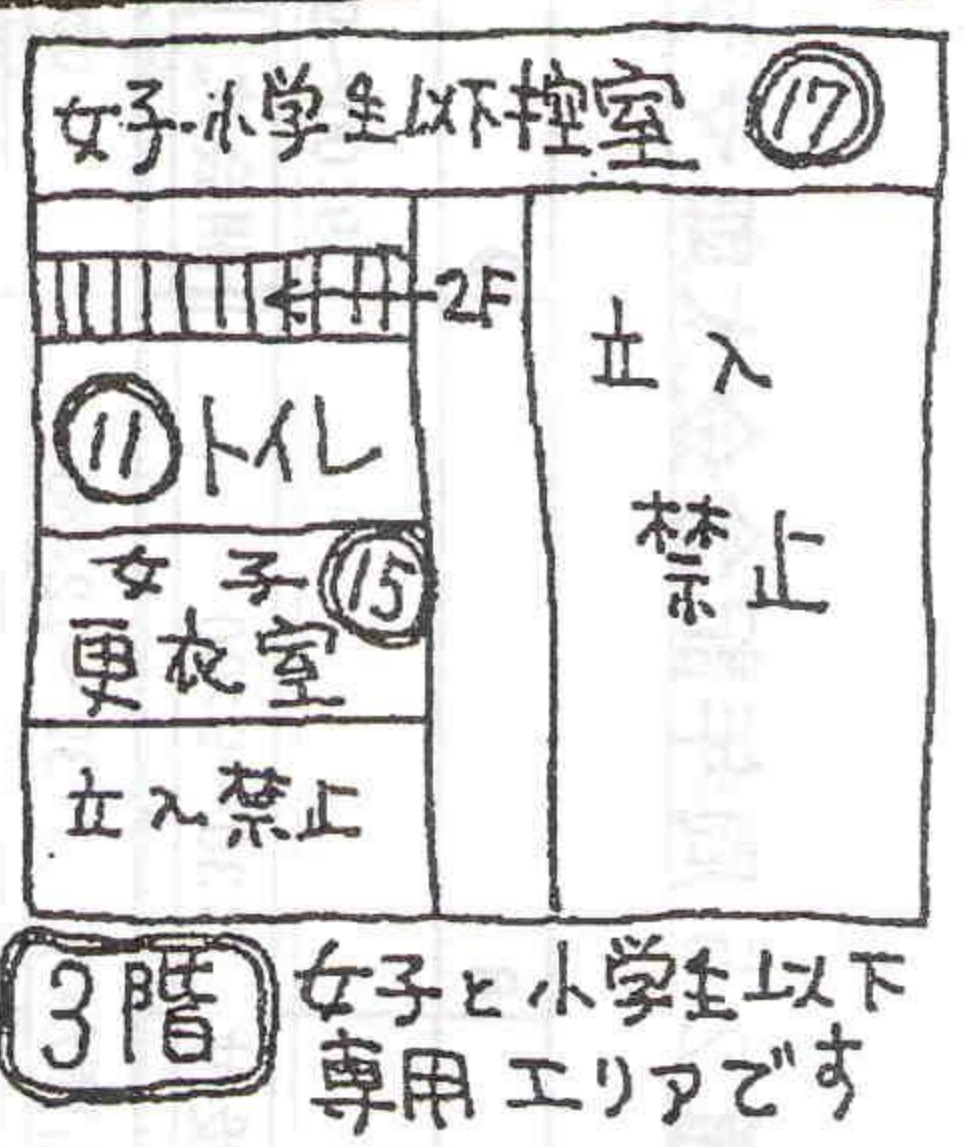 女子・小学生以下控室 ⑰
2F
⑪トイレ
女子 ⑮
更衣室
立入禁止
立入
禁止
3階
女子と小学生以下
専用エリアです